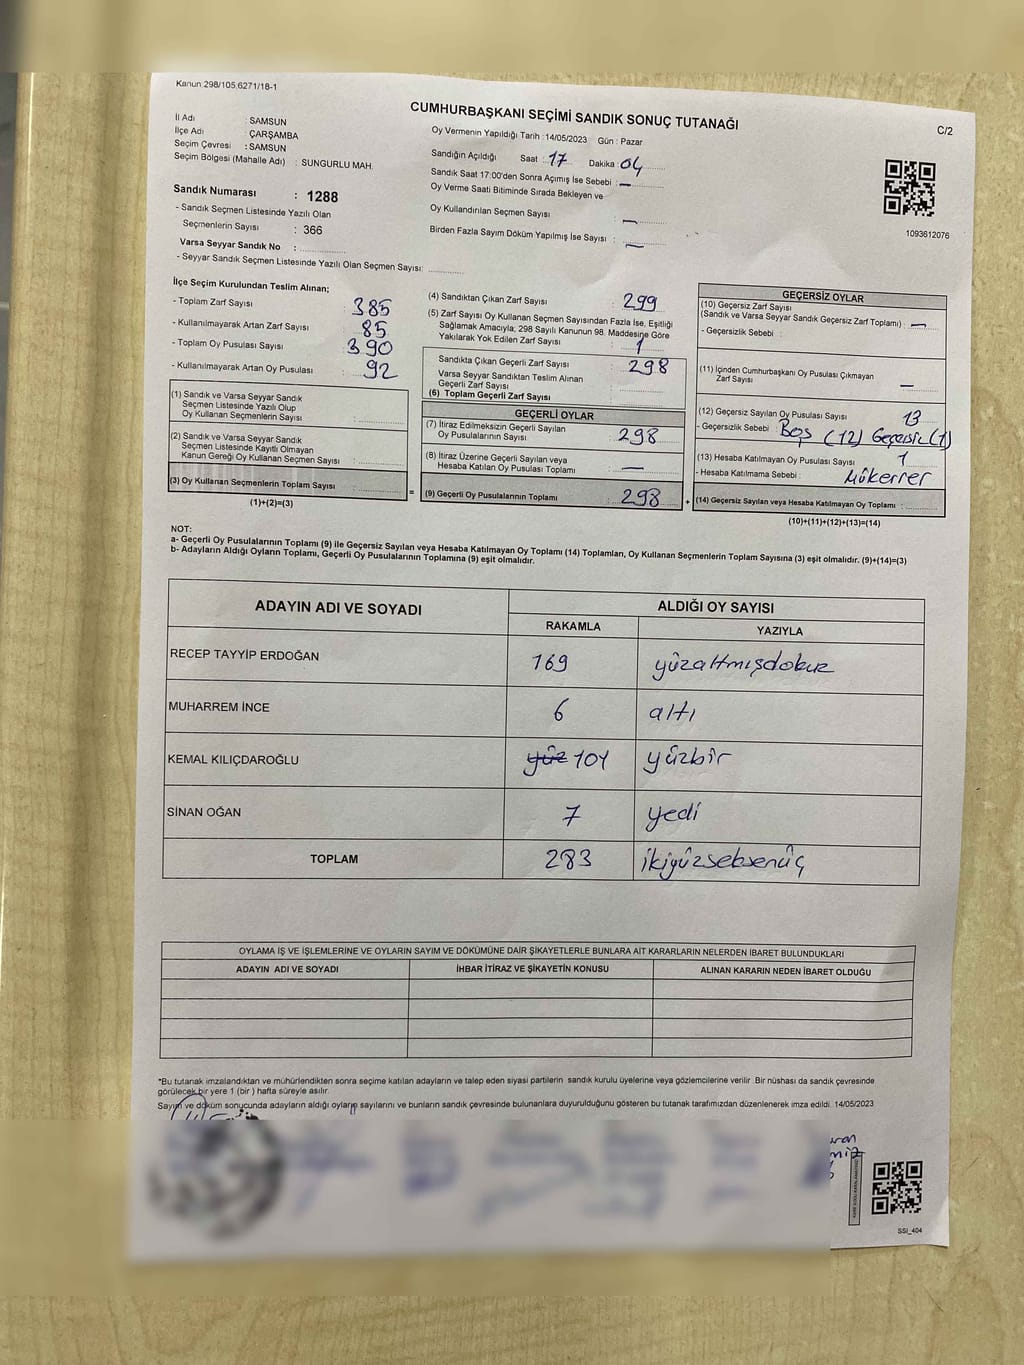 Kanun:298/105,6271/18-1
CUMHURBAŞKANI SEÇİMİ SANDIK SONUÇ TUTANAĞI
C/2
İl Adı : SAMSUN
İlçe Adı : ÇARŞAMBA
Seçim Çevresi : SAMSUN
Seçim Bölgesi (Mahalle Adı) : SUNGURLU MAH.
Sandık Numarası : 1288
- Sandık Seçmen Listesinde Yazılı Olan
Seçmenlerin Sayısı : 366
Varsa Seyyar Sandık No :
- Seyyar Sandık Seçmen Listesinde Yazılı Olan Seçmen Sayısı:
Oy Vermenin Yapıldığı Tarih : 14/05/2023 Gün : Pazar
Sandığın Açıldığı Saat : 17 Dakika 04
Sandık Saat 17:00'den Sonra Açımış İse Sebebi : —
Oy Verme Saati Bitiminde Sırada Bekleyen ve
Oy Kullandırılan Seçmen Sayısı : —
Birden Fazla Sayım Döküm Yapılmış İse Sayısı : —
1093612076
İlçe Seçim Kurulundan Teslim Alınan;
- Toplam Zarf Sayısı : 385
- Kullanılmayarak Artan Zarf Sayısı : 85
- Toplam Oy Pusulası Sayısı : 390
- Kullanılmayarak Artan Oy Pusulası : 92
(1) Sandık ve Varsa Seyyar Sandık
Seçmen Listesinde Yazılı Olup
Oy Kullanan Seçmenlerin Sayısı :
(2) Sandık ve Varsa Seyyar Sandık
Seçmen Listesinde Kayıtlı Olmayan
Kanun Gereği Oy Kullanan Seçmen Sayısı :
(3) Oy Kullanan Seçmenlerin Toplam Sayısı :
(1)+(2)=(3)
(4) Sandıktan Çıkan Zarf Sayısı : 299
(5) Zarf Sayısı Oy Kullanan Seçmen Sayısından Fazla İse, Eşitliği
Sağlamak Amacıyla; 298 Sayılı Kanunun 98. Maddesine Göre
Yakılarak Yok Edilen Zarf Sayısı : 1
Sandıkta Çıkan Geçerli Zarf Sayısı : 298
Varsa Seyyar Sandıktan Teslim Alınan
Geçerli Zarf Sayısı :
(6) Toplam Geçerli Zarf Sayısı :
GEÇERLİ OYLAR
(7) İtiraz Edilmeksizin Geçerli Sayılan
Oy Pusulalarının Sayısı : 298
(8) İtiraz Üzerine Geçerli Sayılan veya
Hesaba Katılan Oy Pusulası Toplamı : —
= (9) Geçerli Oy Pusulalarının Toplamı : 298 +
GEÇERSİZ OYLAR
(10) Geçersiz Zarf Sayısı
(Sandık ve Varsa Seyyar Sandık Geçersiz Zarf Toplamı) : —
- Geçersizlik Sebebi :
(11) İçinden Cumhurbaşkanı Oy Pusulası Çıkmayan
Zarf Sayısı : —
(12) Geçersiz Sayılan Oy Pusulası Sayısı : 13
- Geçersizlik Sebebi : Boş (12) Geçersiz (1)
(13) Hesaba Katılmayan Oy Pusulası Sayısı : 1
- Hesaba Katılmama Sebebi : Mükerrer
(14) Geçersiz Sayılan veya Hesaba Katılmayan Oy Toplamı :
(10)+(11)+(12)+(13)=(14)
NOT:
a- Geçerli Oy Pusulalarının Toplamı (9) ile Geçersiz Sayılan veya Hesaba Katılmayan Oy Toplamı (14) Toplamları, Oy Kullanan Seçmenlerin Toplam Sayısına (3) eşit olmalıdır. (9)+(14)=(3)
b- Adayların Aldığı Oyların Toplamı, Geçerli Oy Pusulalarının Toplamına (9) eşit olmalıdır.
ADAYIN ADI VE SOYADI ALDIĞI OY SAYISI
RAKAMLA YAZIYLA
RECEP TAYYİP ERDOĞAN 169 yüzaltmışdokuz
MUHARREM İNCE 6 altı
KEMAL KILIÇDAROĞLU yüz 101 yüzbir
SİNAN OĞAN 7 yedi
TOPLAM 283 ikiyüzseksenüç
OYLAMA İŞ VE İŞLEMLERİNE VE OYLARIN SAYIM VE DÖKÜMÜNE DAİR ŞİKAYETLERLE BUNLARA AİT KARARLARIN NELERDEN İBARET BULUNDUKLARI
ADAYIN ADI VE SOYADI İHBAR İTİRAZ VE ŞİKAYETİN KONUSU ALINAN KARARIN NEDEN İBARET OLDUĞU
*Bu tutanak imzalandıktan ve mühürlendikten sonra seçime katılan adayların ve talep eden siyasi partilerin sandık kurulu üyelerine veya gözlemcilerine verilir. Bir nüshası da sandık çevresinde
görülecek bir yere 1 (bir ) hafta süreyle asılır.
Sayım ve döküm sonucunda adayların aldığı oyların sayılarını ve bunların sandık çevresinde bulunanlara duyurulduğunu gösteren bu tutanak tarafımızdan düzenlenerek imza edildi. 14/05/2023
SSI_404